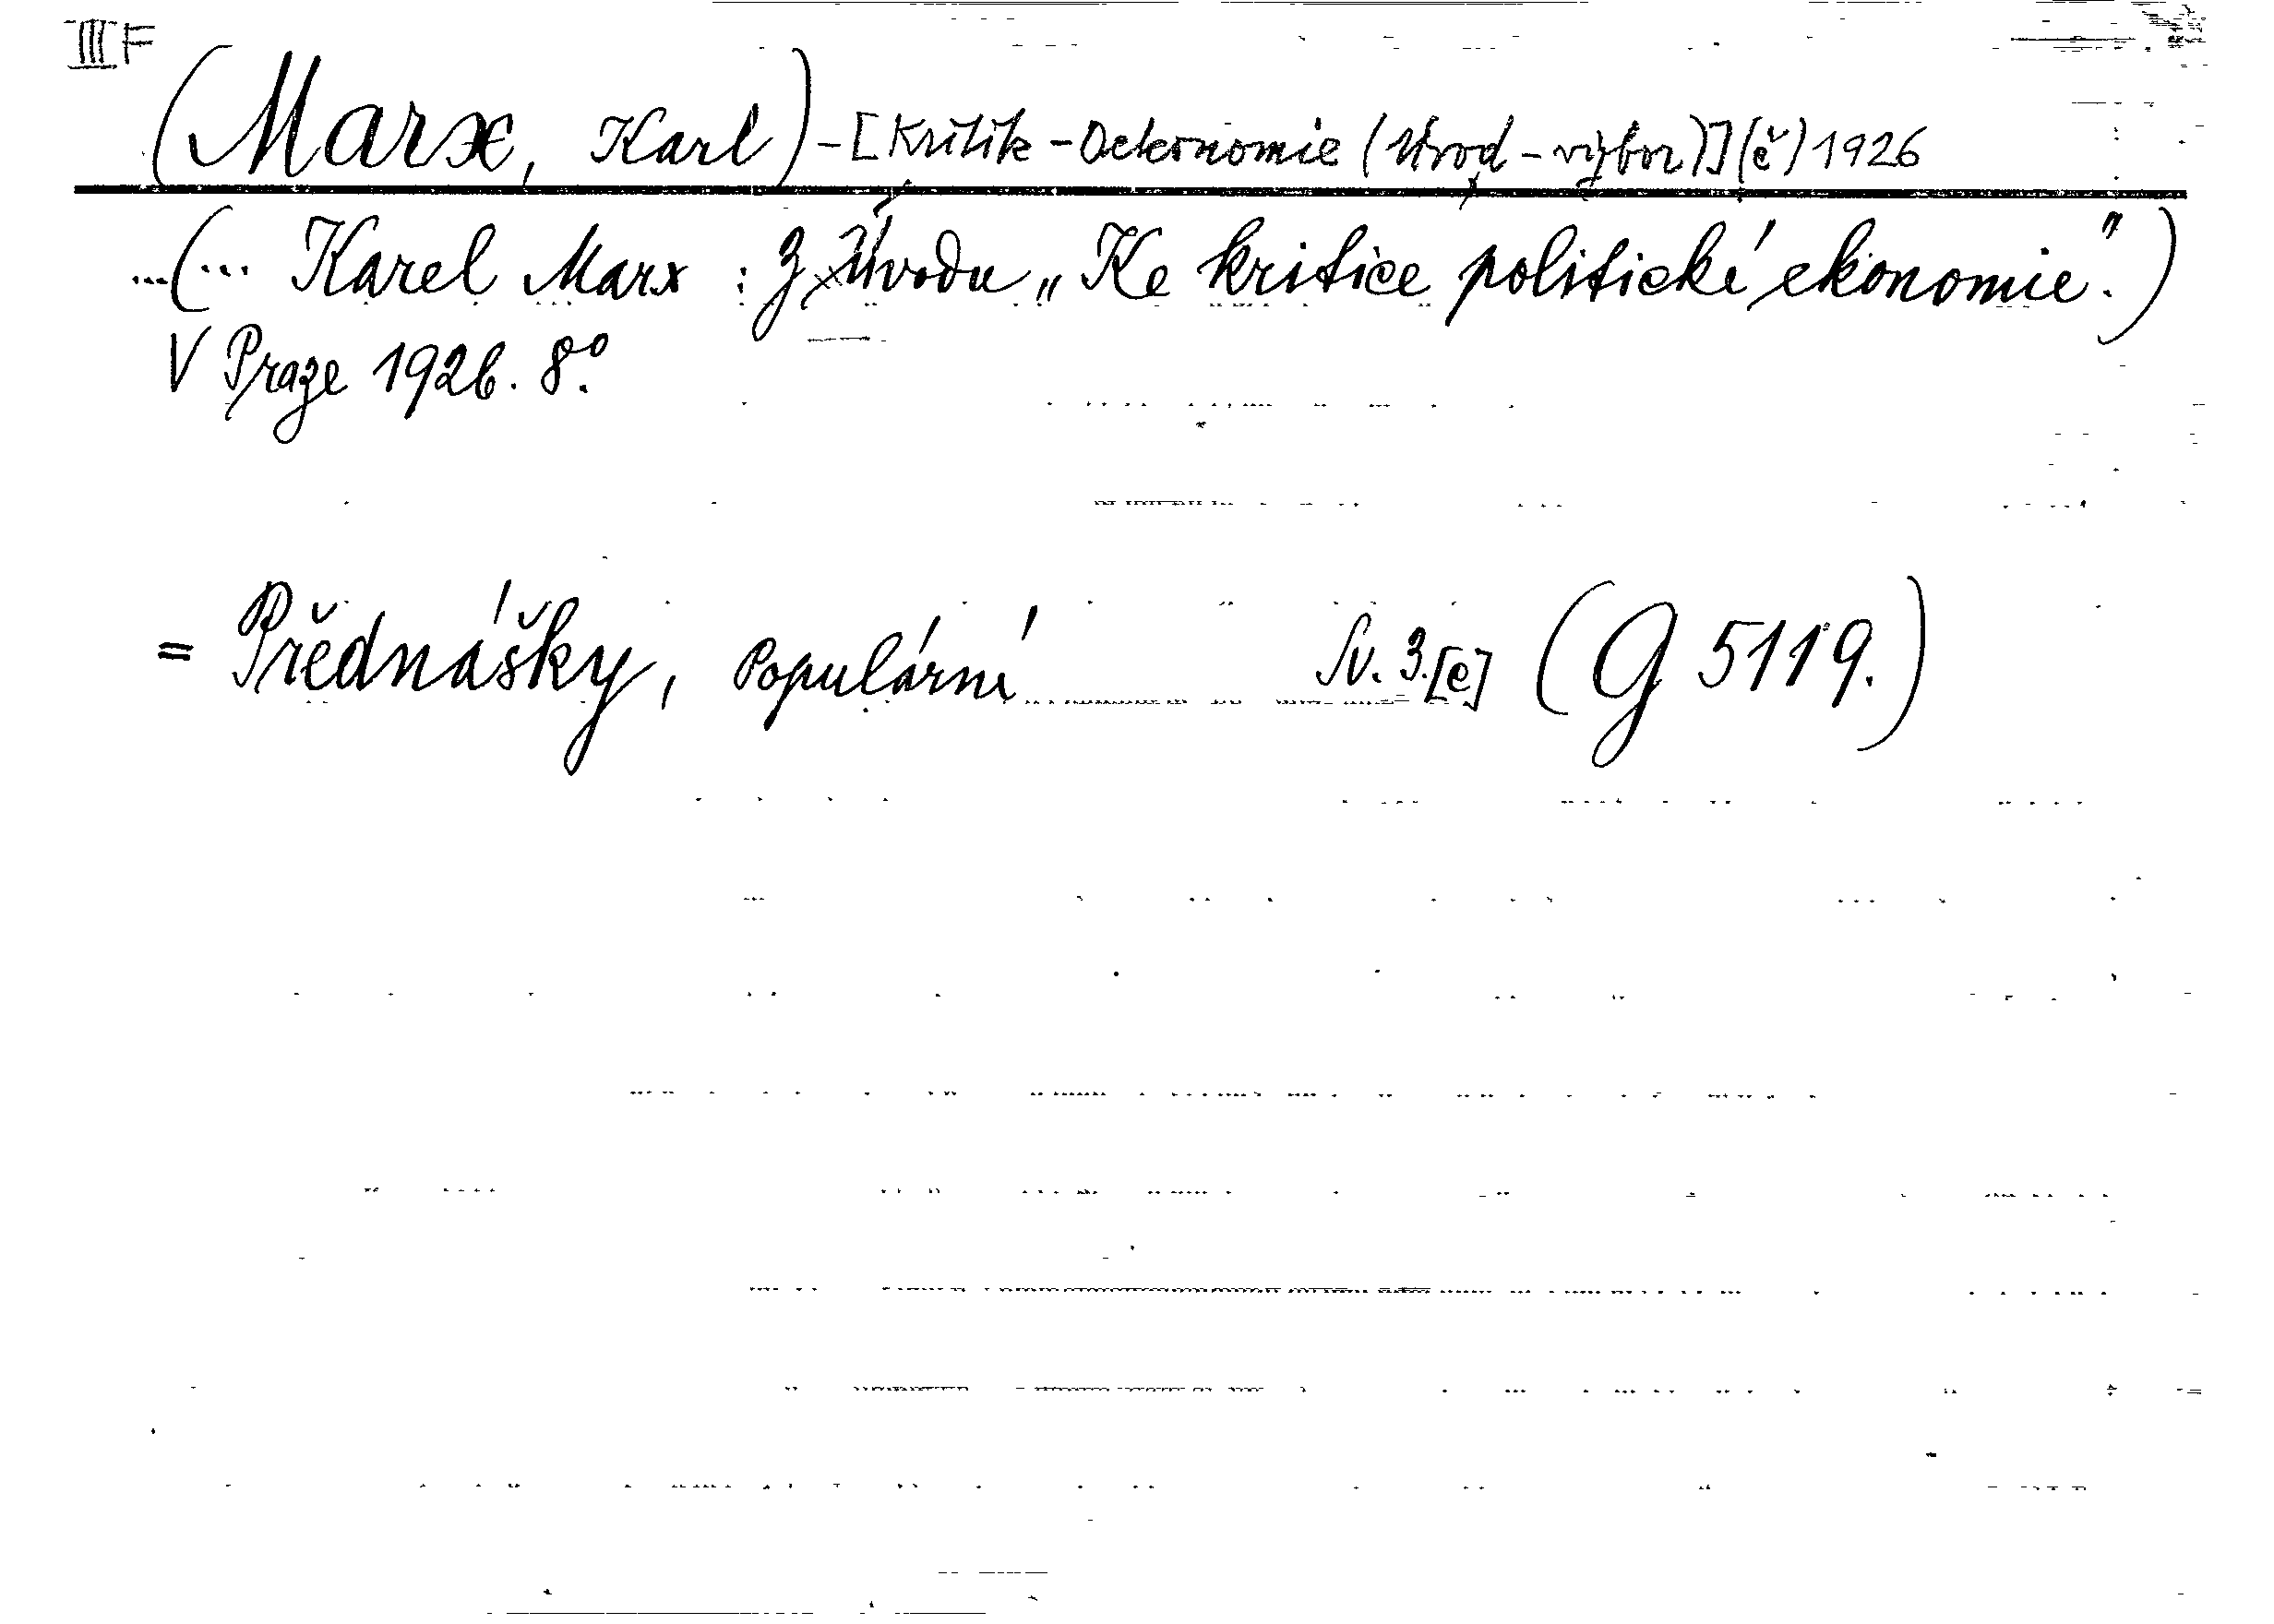 III F
(Marx, Karl) - [Kritik - Oekonomie (Úvod - výbor)] (č) 1926
...(... Karel Marx : Z Úvodu „Ke kritice politické ekonomie.")
V Praze 1926. 8°.
= Přednášky, Populární Sv. 3.[e] (G 5119.)